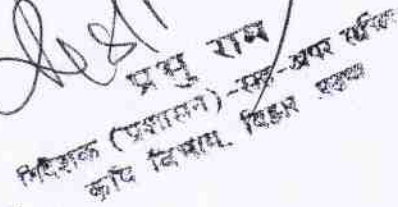 प्रभु राम
निदेशक (प्रशासन)-सह-अपर सचिव
कृषि विभाग, बिहार पटना